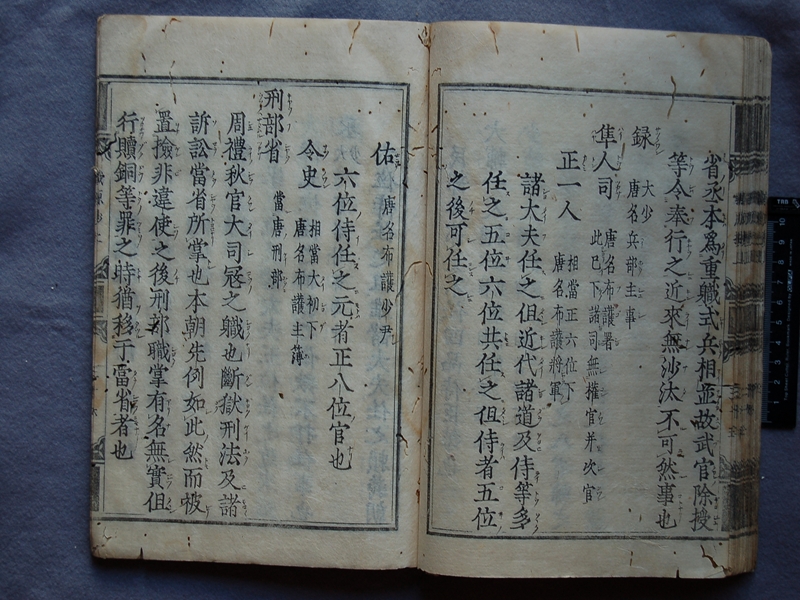 省丞本為重職式兵相並故武官除授
等令奉行之近來無沙汰不可然事也
録 大少 唐名兵部主事
隼人司 唐名布護署 此已下諸司無權官并次官
正一人 相當正六位下 唐名布護將軍
諸大夫任之但近代諸道及侍等多
任之五位六位共任之但侍者五位
之後可任之
佑 唐名布護少尹
六位侍任之元者正八位官也
令史 相當大初下 唐名布護主簿
刑部省 當唐刑部
周禮秋官大司冦之職也斷獄刑法及諸
訴訟當省所掌也本朝先例如此然而被
置撿非違使之後刑部職掌有名無實但
行贖銅等罪之時猶移于當省者也